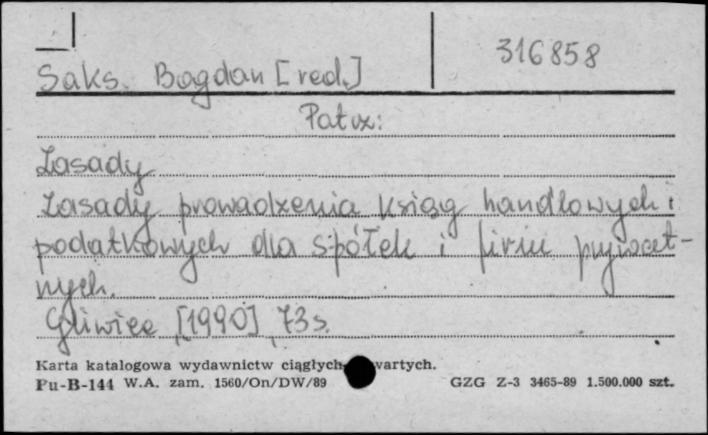 316858
Saks Bogdan [red.]
Patrz:
Zasady
Zasady prowadzenia ksiąg handlowych i
podatkowych dla spółek i firm prywat-
nych.
Gliwice [1990] 73 s.
Karta katalogowa wydawnictw ciągłych wartych.
Pu-B-144 W.A. zam. 1560/On/DW/89 GZG Z-3 3465-89 1.500.000 szt.